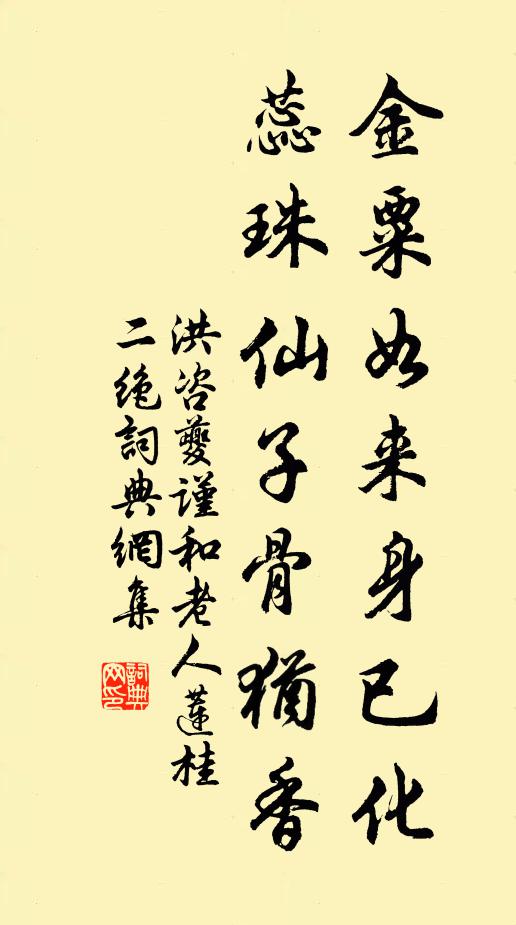 金粟如来身已化
蕊珠仙子骨猶香
洪咨夔谨和老人蓮桂
二绝詞典網集
詞典网印